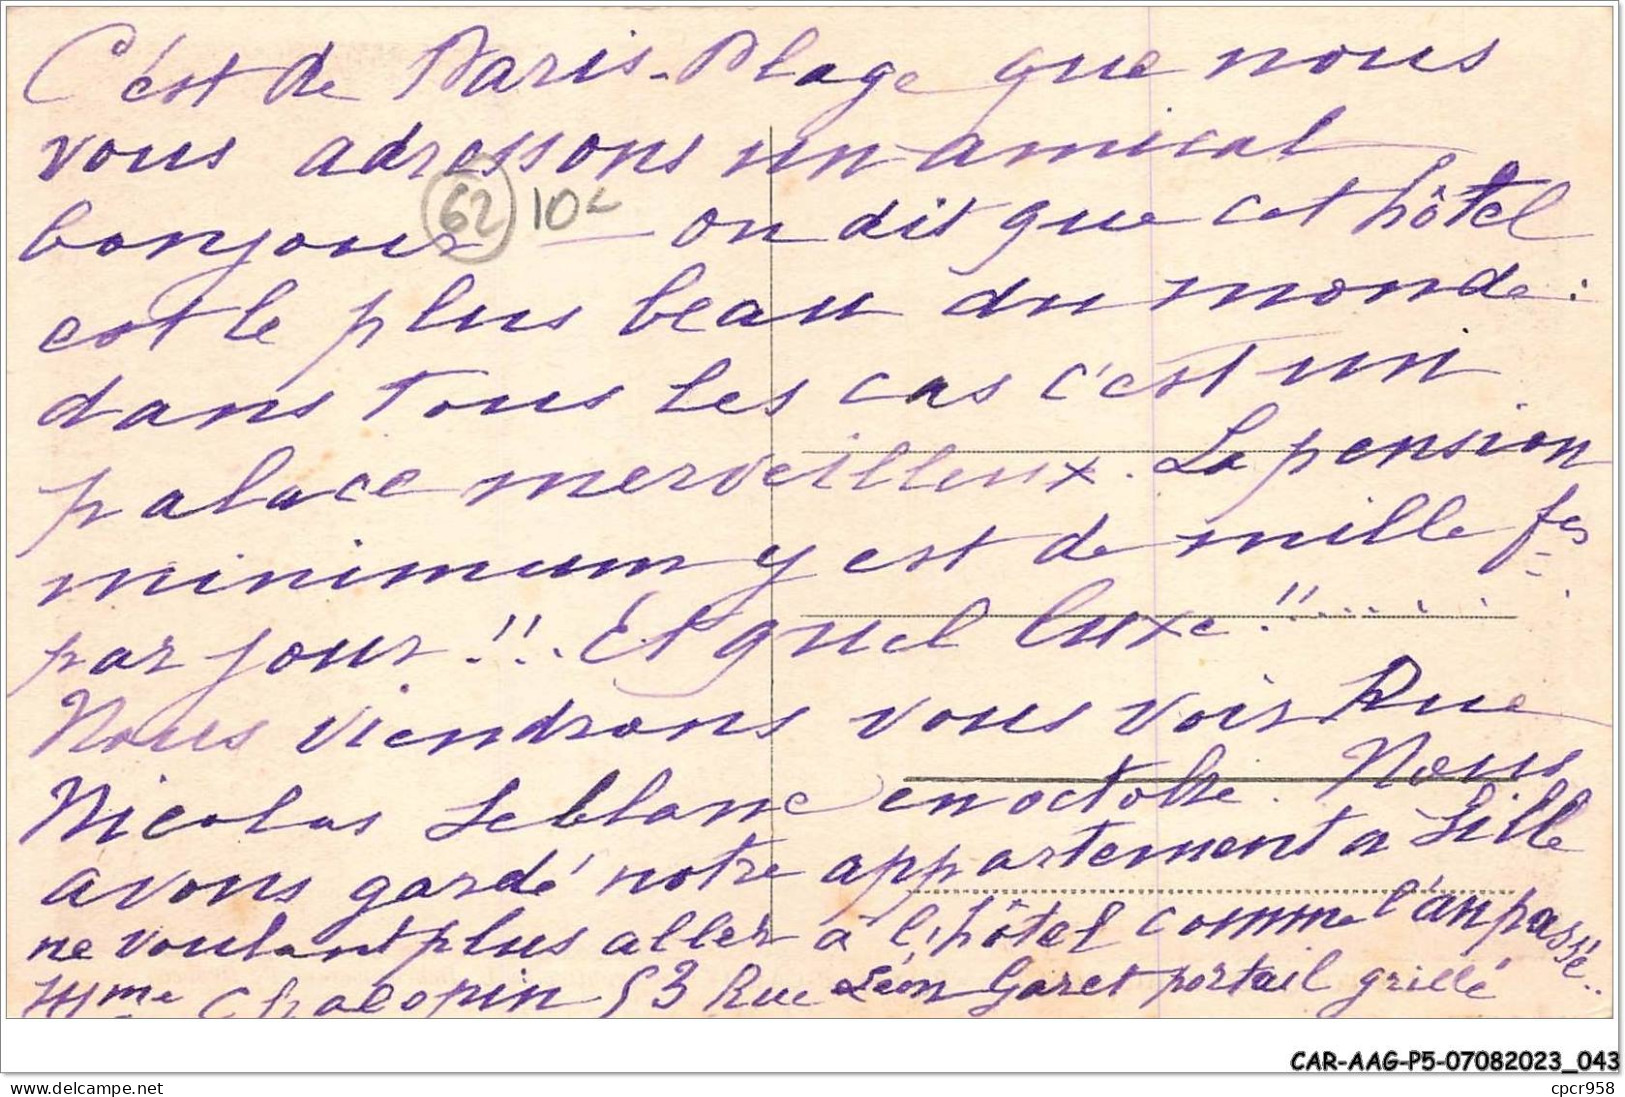 C'est de Paris-Plage que nous
vous adressons un amical
bonjour — on dit que cet hôtel
est le plus beau du monde :
dans tous les cas c'est un
palace merveilleux. La pension
minimum y est de mille frs
par jour !!. Et quel luxe !!......
Nous viendrons vous voir Rue
Nicolas Leblanc en octobre. Nous
avons gardé notre appartement a Lille
ne voulant plus aller à l'hôtel comme l'an passé..
Mme Chalopin 53 Rue Léon Garet portail grillé
62 10c
CAR-AAG-P5-07082023_043
https://www.delcampe.net
cpcr958